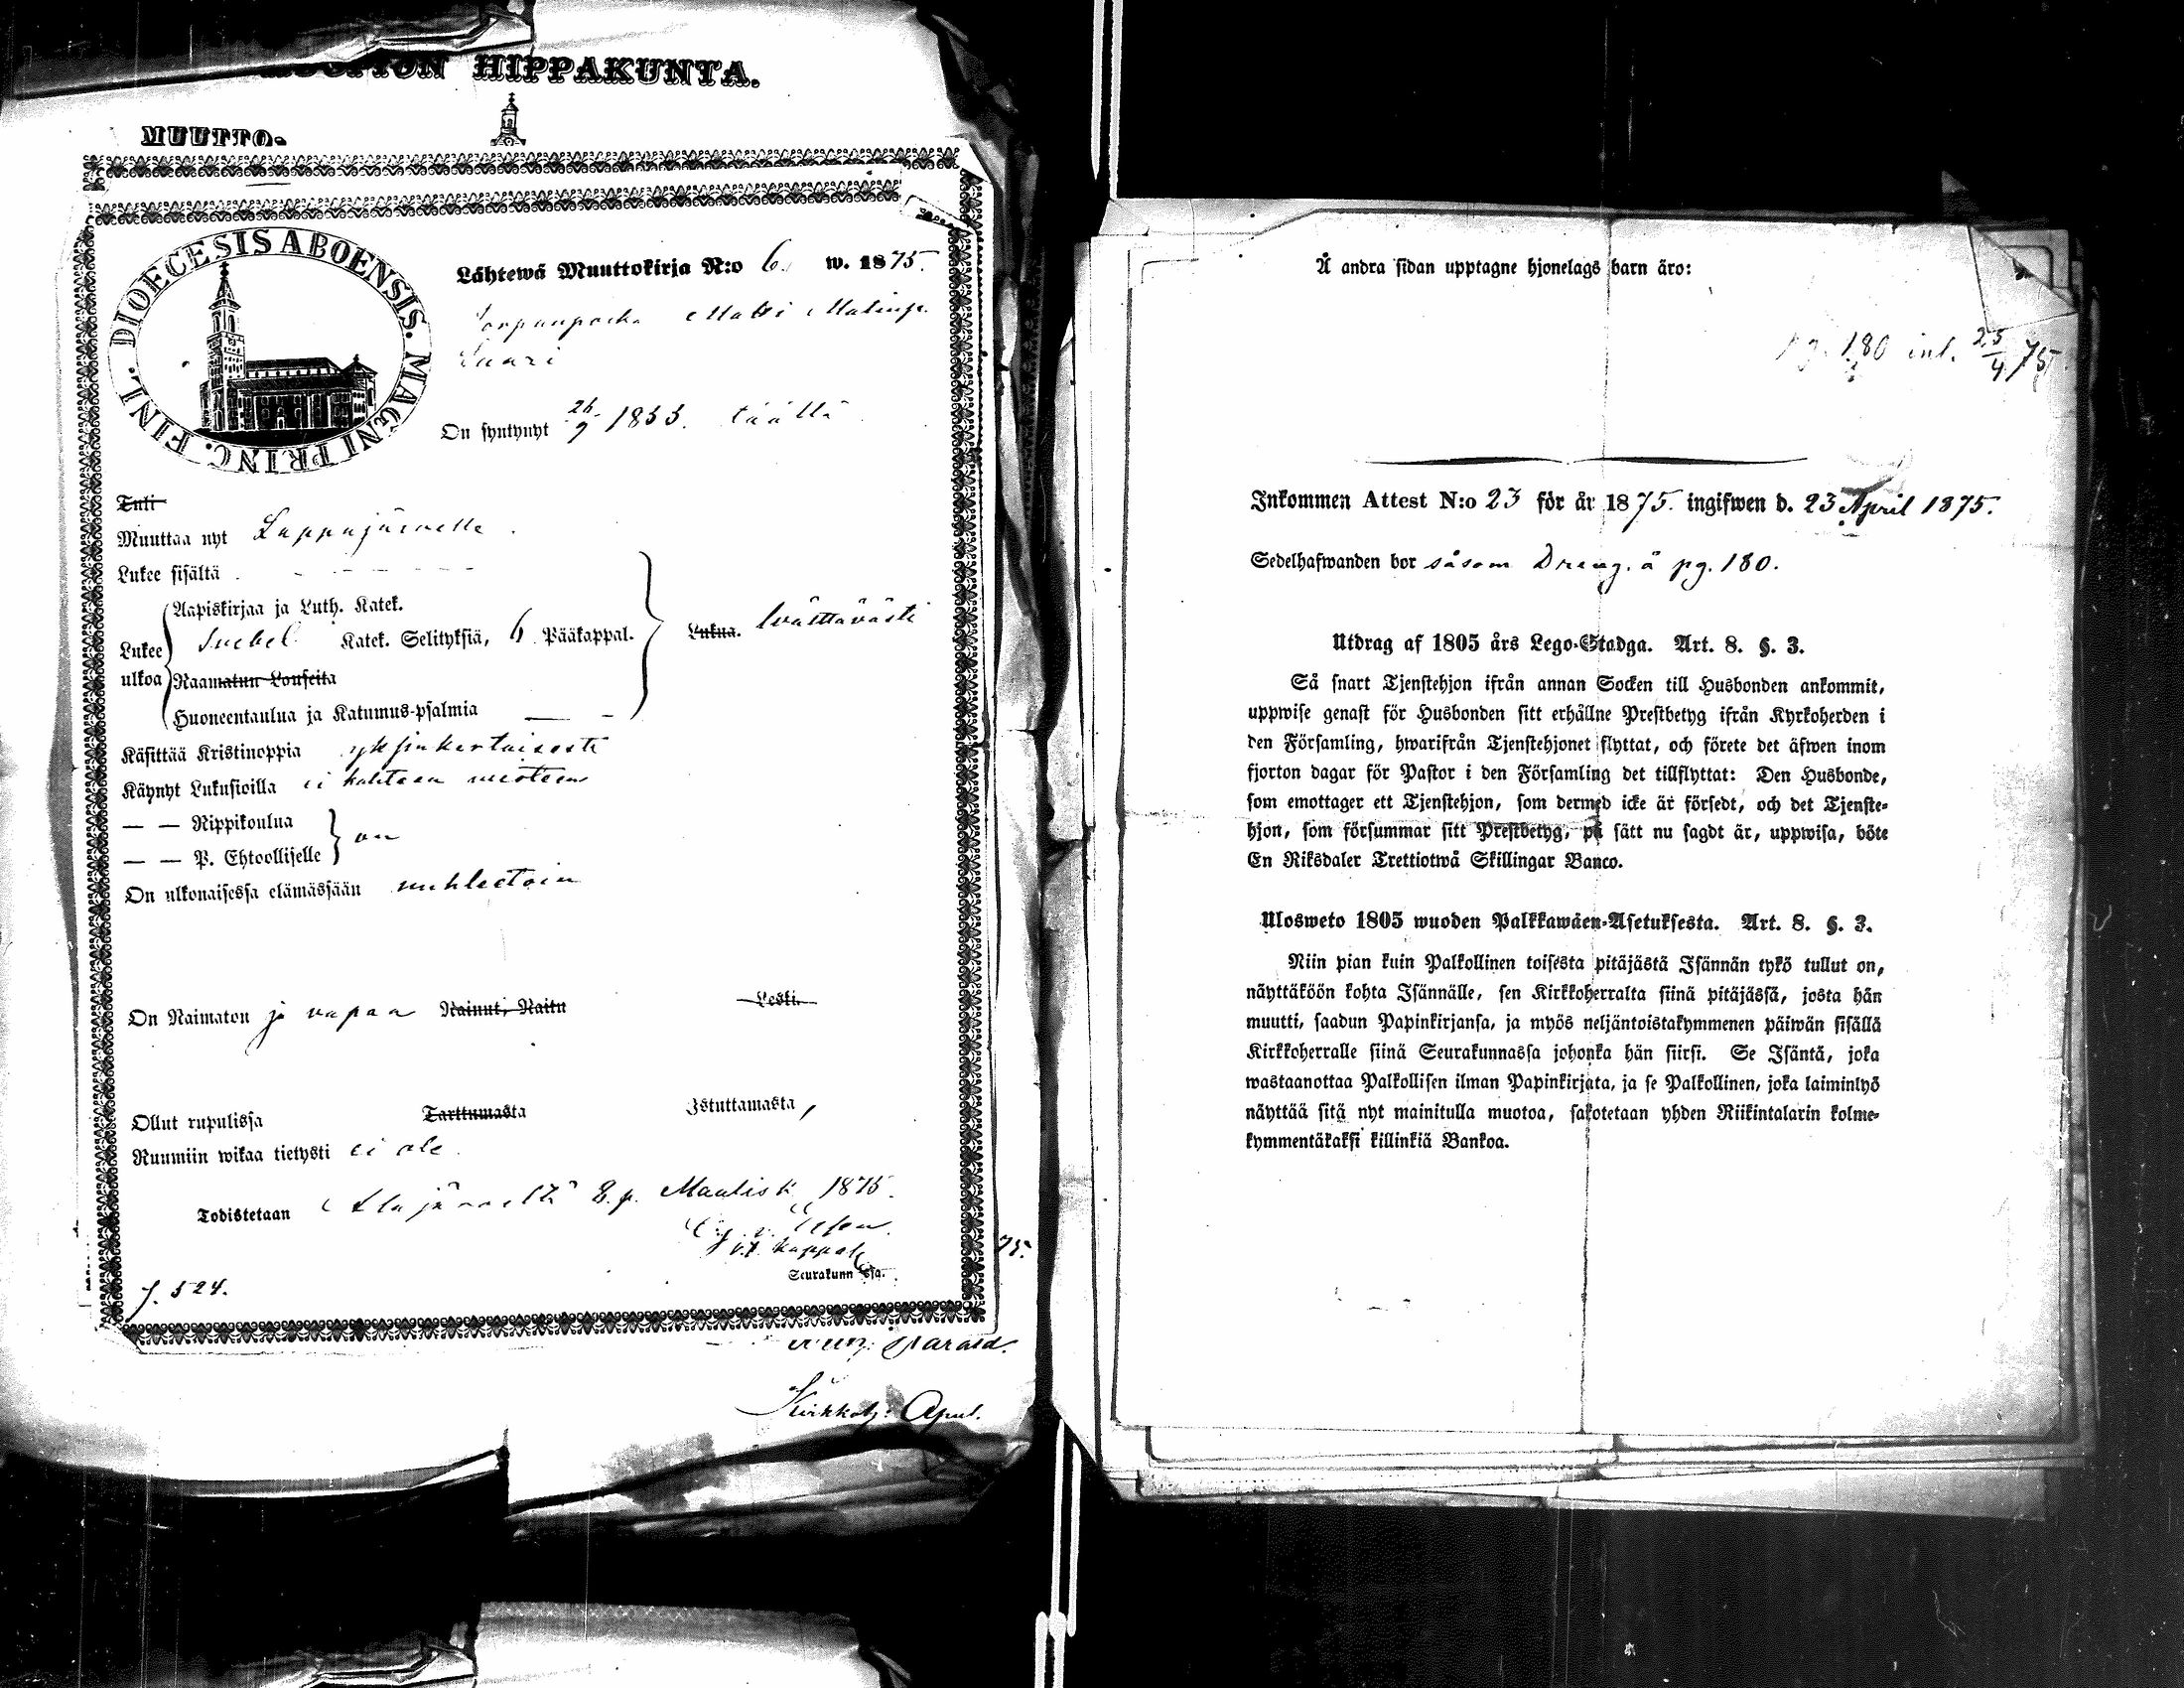 HIPPAKUNTA.
MUUTTO-
DIOECESIS ABOENSIS. MAGNI PRINC. FINL.
Lähtewä Muuttokirja N:o 6. w. 1875.
Matti Matinp.
Saari
On syntynyt 26/9 1853. täällä
Tuli
Muuttaa nyt Lappajärwelle.
Lukee sisältä - - - - -
Aapiskirjaa ja Luth. Katek.
Lukee ulkoa Suebel. Katek. Selityksiä, 6 Pääkappal. Lukua. wälttäwästi
Raamatun Lauseita
Huoneentaulua ja Katumus-psalmia — -
Käsittää Kristinoppia yksinkertaisesti
Käynyt Lukusioilla ei kahteen wuoteen
— — Rippikoulua
— — P. Ehtoollijelle } on
On ulkonaisessa elämässään nuhteetoin
On Naimaton ja vapaa Nainut, Naitu Leski.
Ollut rupulissa Tarttumasta Istuttamasta,
Ruumiin wikaa tietysti ei ole.
Todistetaan Alajärveltä 8. p. Maalisk. 1875.
v.t. kappal.
Seurakunn ssa.
f. 524.
75.
Kirkkoh: Apul.
Å andra sidan upptagne hjonelags barn äro:
pg. 180 inl. 25/4 75
Inkommen Attest N:o 23 för år 1875. ingifwen d. 23 April 1875.
Sedelhafwanden bor såsom Dreng. å pg. 180.
Utdrag af 1805 års Lego-Stadga. Art. 8. §. 3.
Så snart Tjenstehjon ifrån annan Socken till Husbonden ankommit,
uppwise genast för Husbonden sitt erhållne Prestbetyg ifrån Kyrkoherden i
den Församling, hwarifrån Tjenstehjonet flyttat, och förete det äfwen inom
fjorton dagar för Pastor i den Församling det tillflyttat: Den Husbonde,
som emottager ett Tjenstehjon, som dermed icke är försedt, och det Tjenste-
hjon, som försummar sitt Prestbetyg, på sätt nu sagdt är, uppwisa, böte
En Riksdaler Trettiotwå Skillingar Banco.
Ulosweto 1805 wuoden Palkkawäen-Asetuksesta. Art. 8. §. 3.
Niin pian kuin Palkollinen toisesta pitäjästä Isännän tykö tullut on,
näyttäköön kohta Isännälle, sen Kirkkoherralta siinä pitäjässä, josta hän
muutti, saadun Papinkirjansa, ja myös neljäntoistakymmenen päiwän sisällä
Kirkkoherralle siinä Seurakunnassa johonka hän siirsi. Se Isäntä, joka
wastaanottaa Palkollisen ilman Papinkirjata, ja se Palkollinen, joka laiminlyö
näyttää sitä nyt mainitulla muotoa, sakotetaan yhden Riikintalarin kolme-
kymmentäkaksi killinkiä Bankoa.